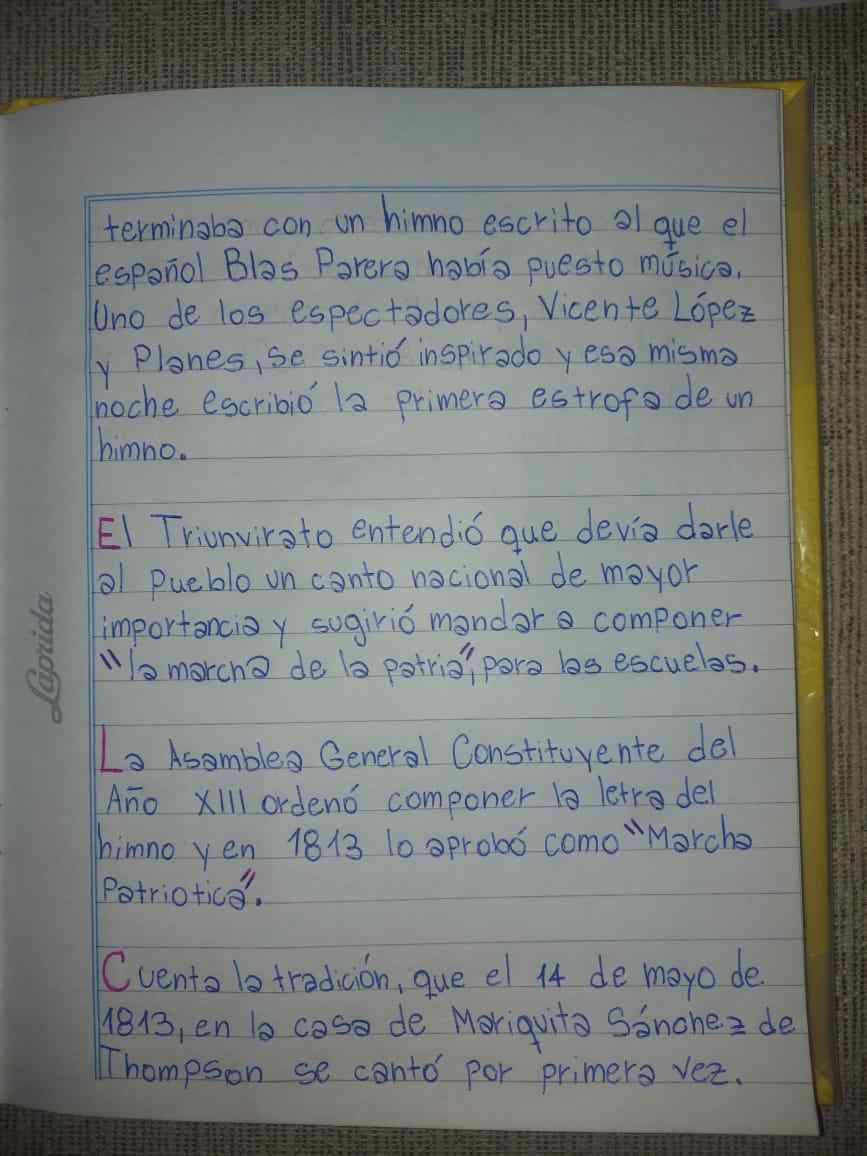 terminaba con un himno escrito al que el
español Blas Parera había puesto música.
Uno de los espectadores, Vicente López
y Planes, se sintió inspirado y esa misma
noche escribió la primera estrofa de un
himno.
El Triunvirato entendió que devía darle
al pueblo un canto nacional de mayor
importancia y sugirió mandar a componer
"la marcha de la patria", para las escuelas.
La Asamblea General Constituyente del
Año XIII ordenó componer la letra del
himno y en 1813 lo aprobó como "Marcha
Patriotica".
Cuenta la tradición, que el 14 de mayo de
1813, en la casa de Mariquita Sánchez de
Thompson se cantó por primera vez.
Laprida